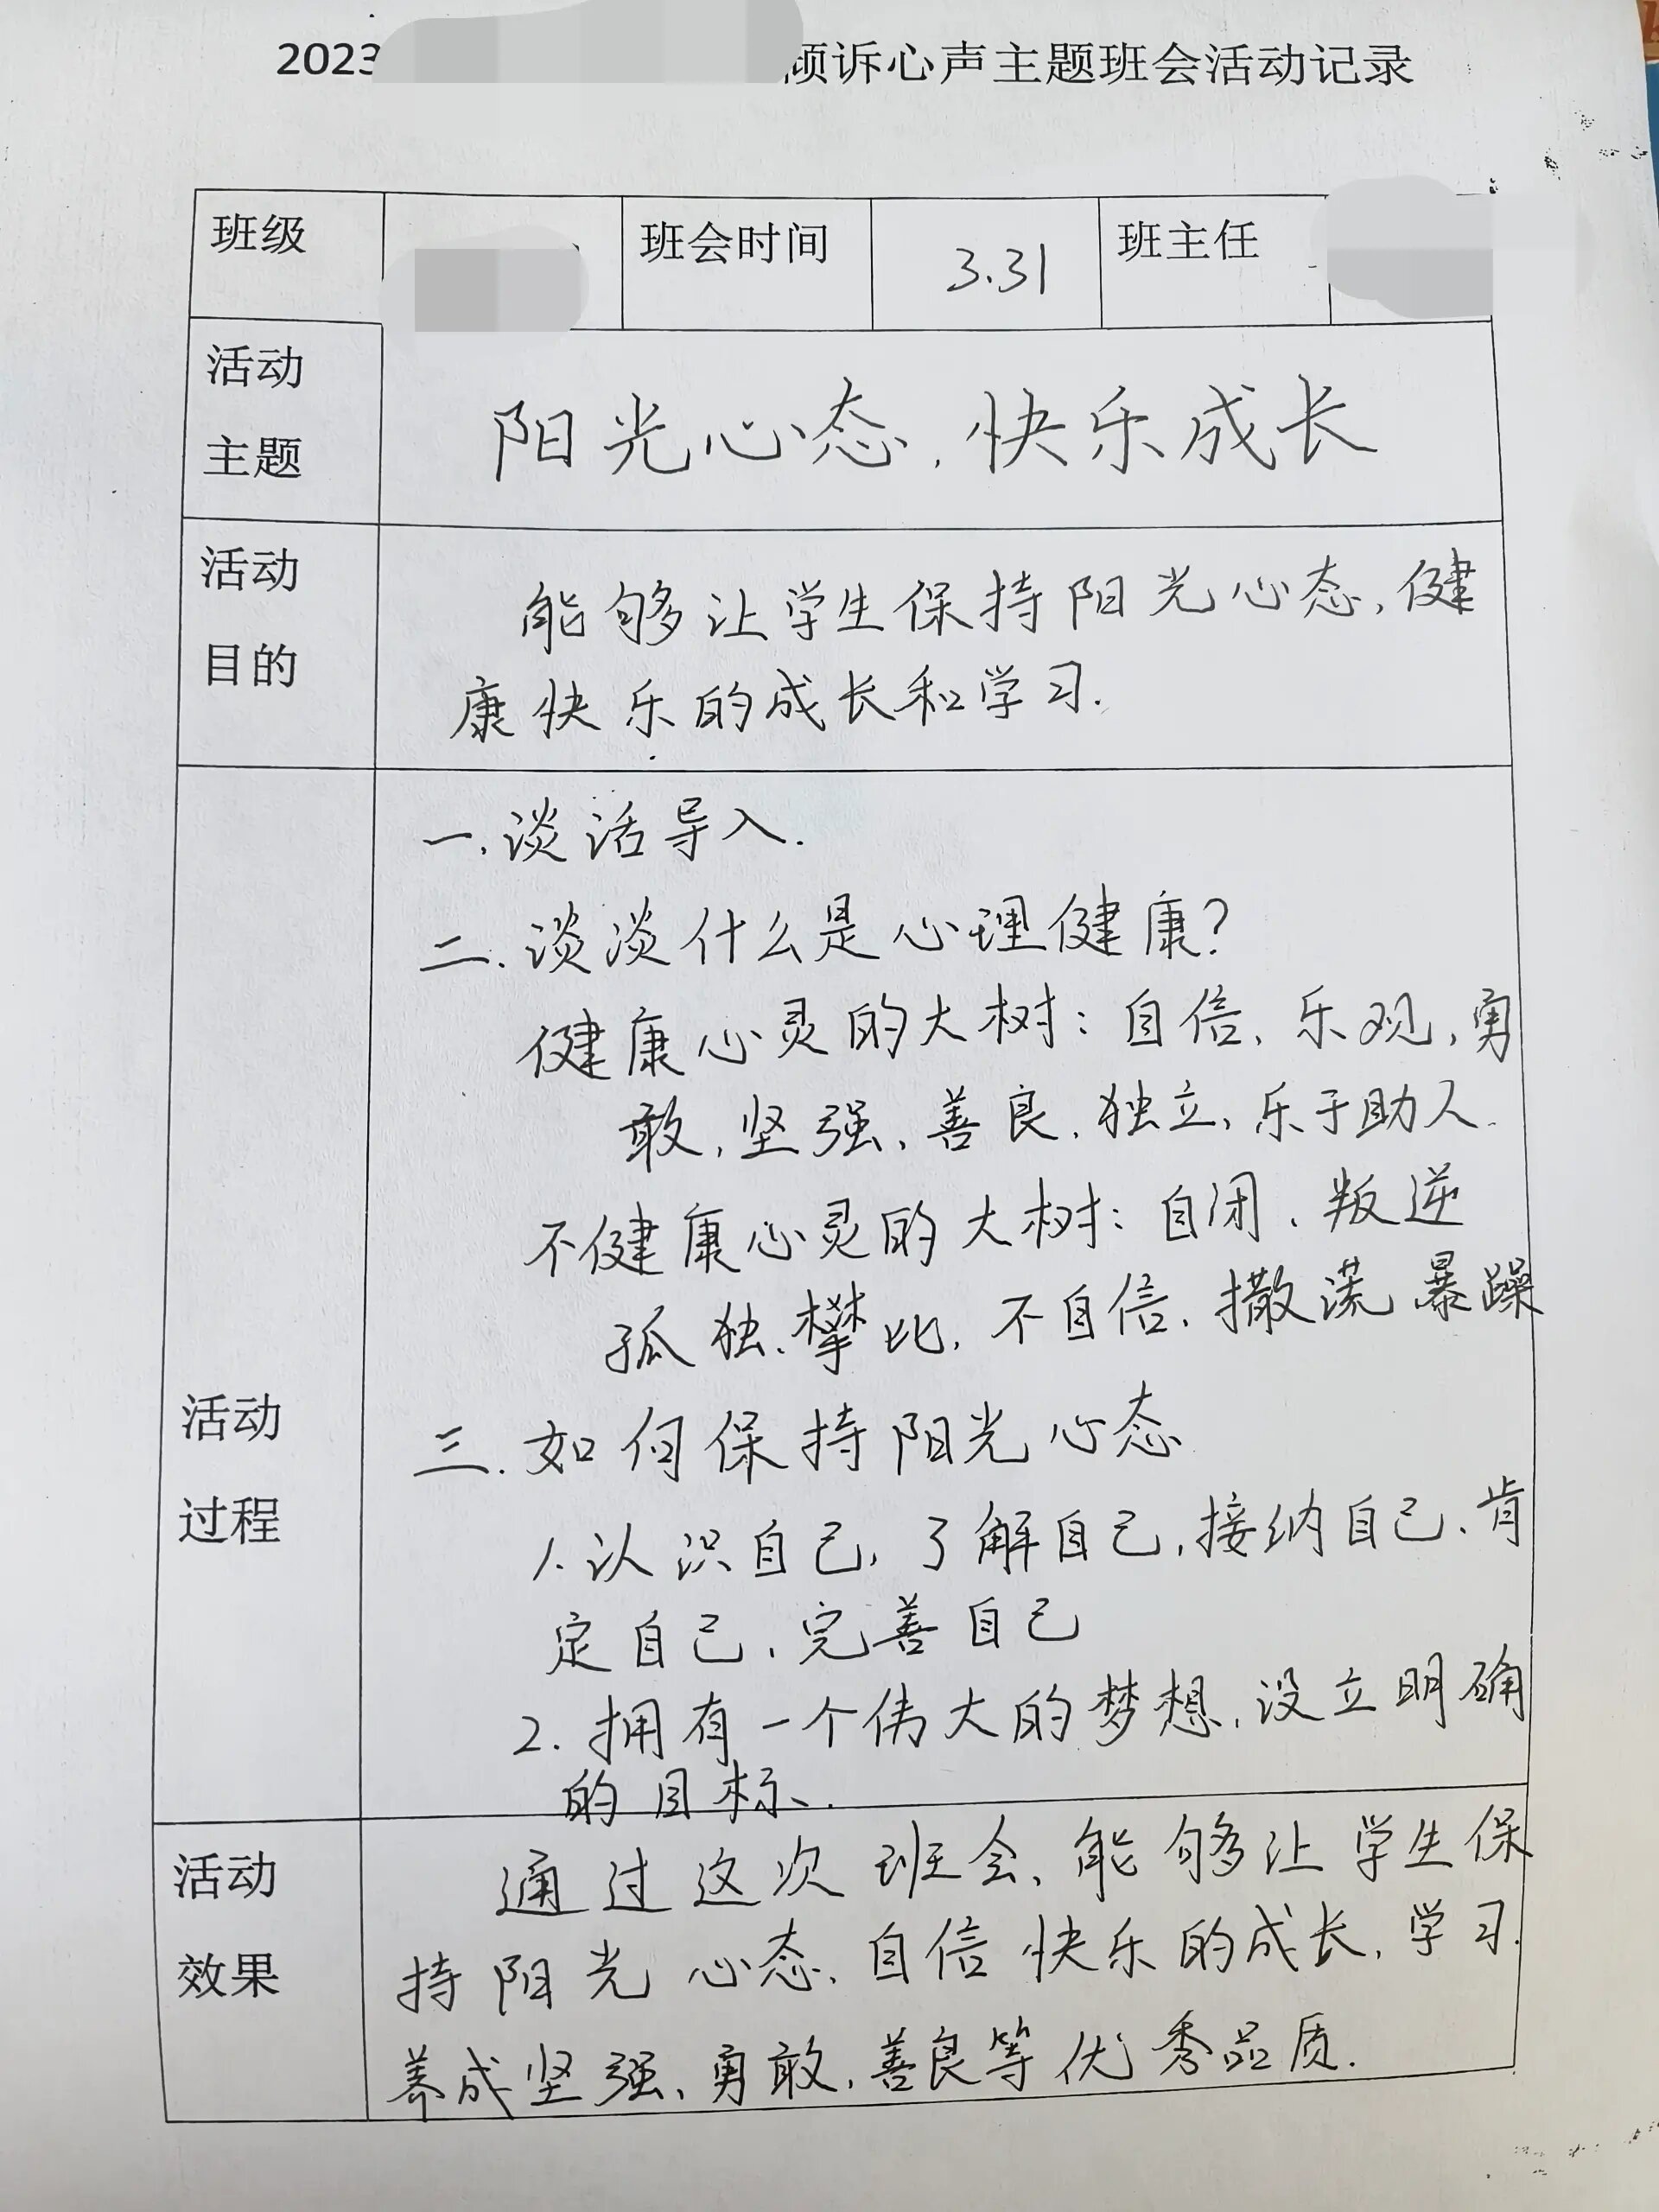 2023 倾诉心声主题班会活动记录
班级 班会时间 3.31 班主任
活动
主题
阳光心态,快乐成长
活动
目的
能够让学生保持阳光心态,健
康快乐的成长和学习.
活动
过程
一.谈话导入.
二.谈谈什么是心理健康?
健康心灵的大树:自信、乐观,勇
敢,坚强、善良、独立,乐于助人.
不健康心灵的大树:自闭、叛逆
孤独、攀比,不自信、撒谎 暴躁
三.如何保持阳光心态
1.认识自己,了解自己,接纳自己、肯
定自己、完善自己
2.拥有一个伟大的梦想,设立明确
的目标.
活动
效果
通过这次班会,能够让学生保
持阳光心态,自信快乐的成长,学习.
养成坚强、勇敢,善良等优秀品质.